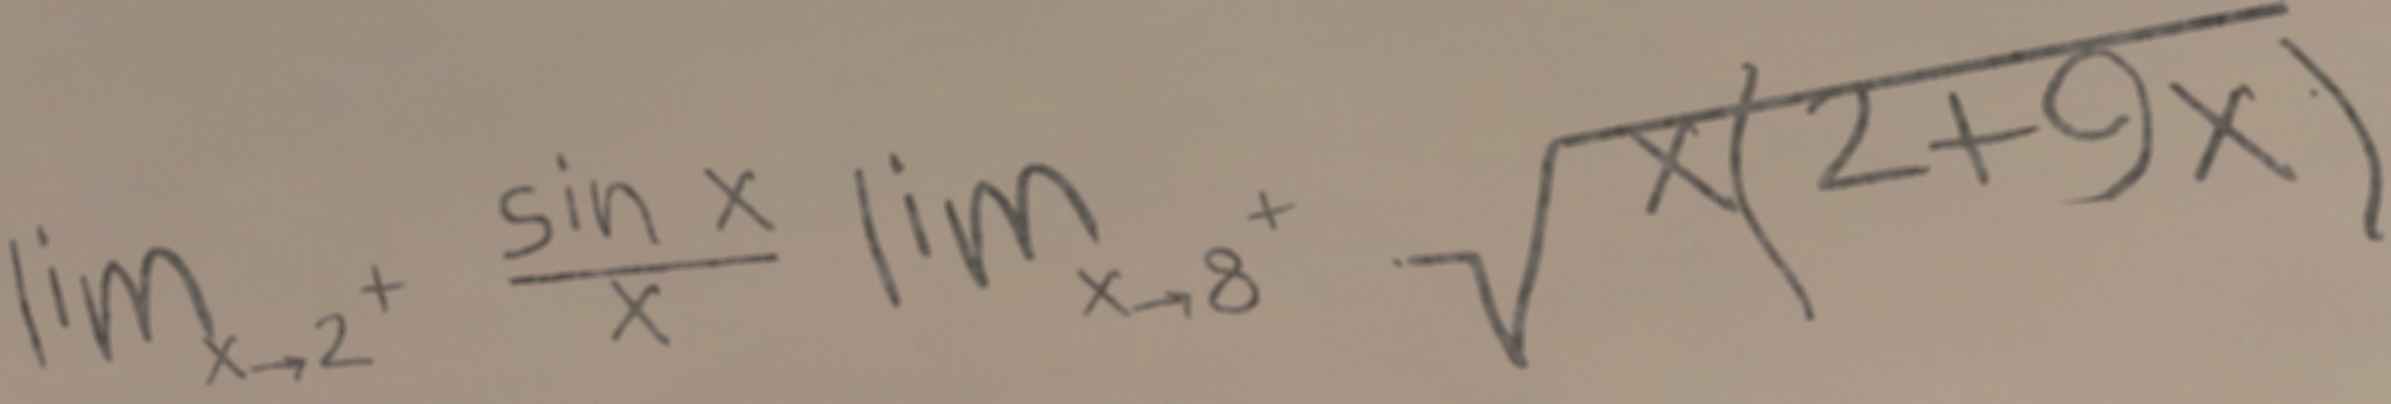 \lim_{x \to 2^+} \frac{\sin x}{x} \lim_{x \to 8^+} \sqrt{x(2+9x)}